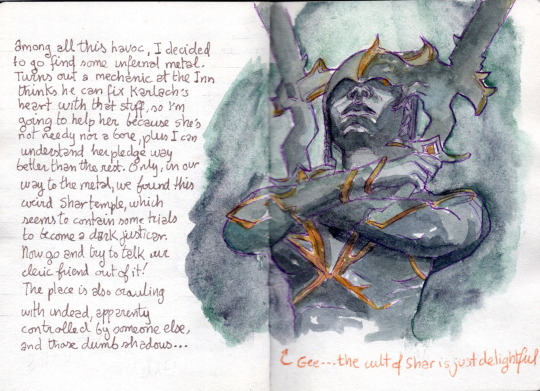 Among all this havoc, I decided
to go find some infernal metal.
Turns out a mechanic at the Inn
thinks he can fix Karlach's
heart with that stuff, so I'm
going to help her because she's
not needy nor a bore, plus I can
understand her pledge way
better than the rest. Only, in our
way to the metal, we found this
weird Shar temple, which
seems to contain some trials
to become a dark justicar.
Now go and try to talk
cleric friend out of it!
The place is also crawling
with undead, apparently
controlled by someone else,
and those dumb shadows...
Gee... the cult of Shar is just delightful